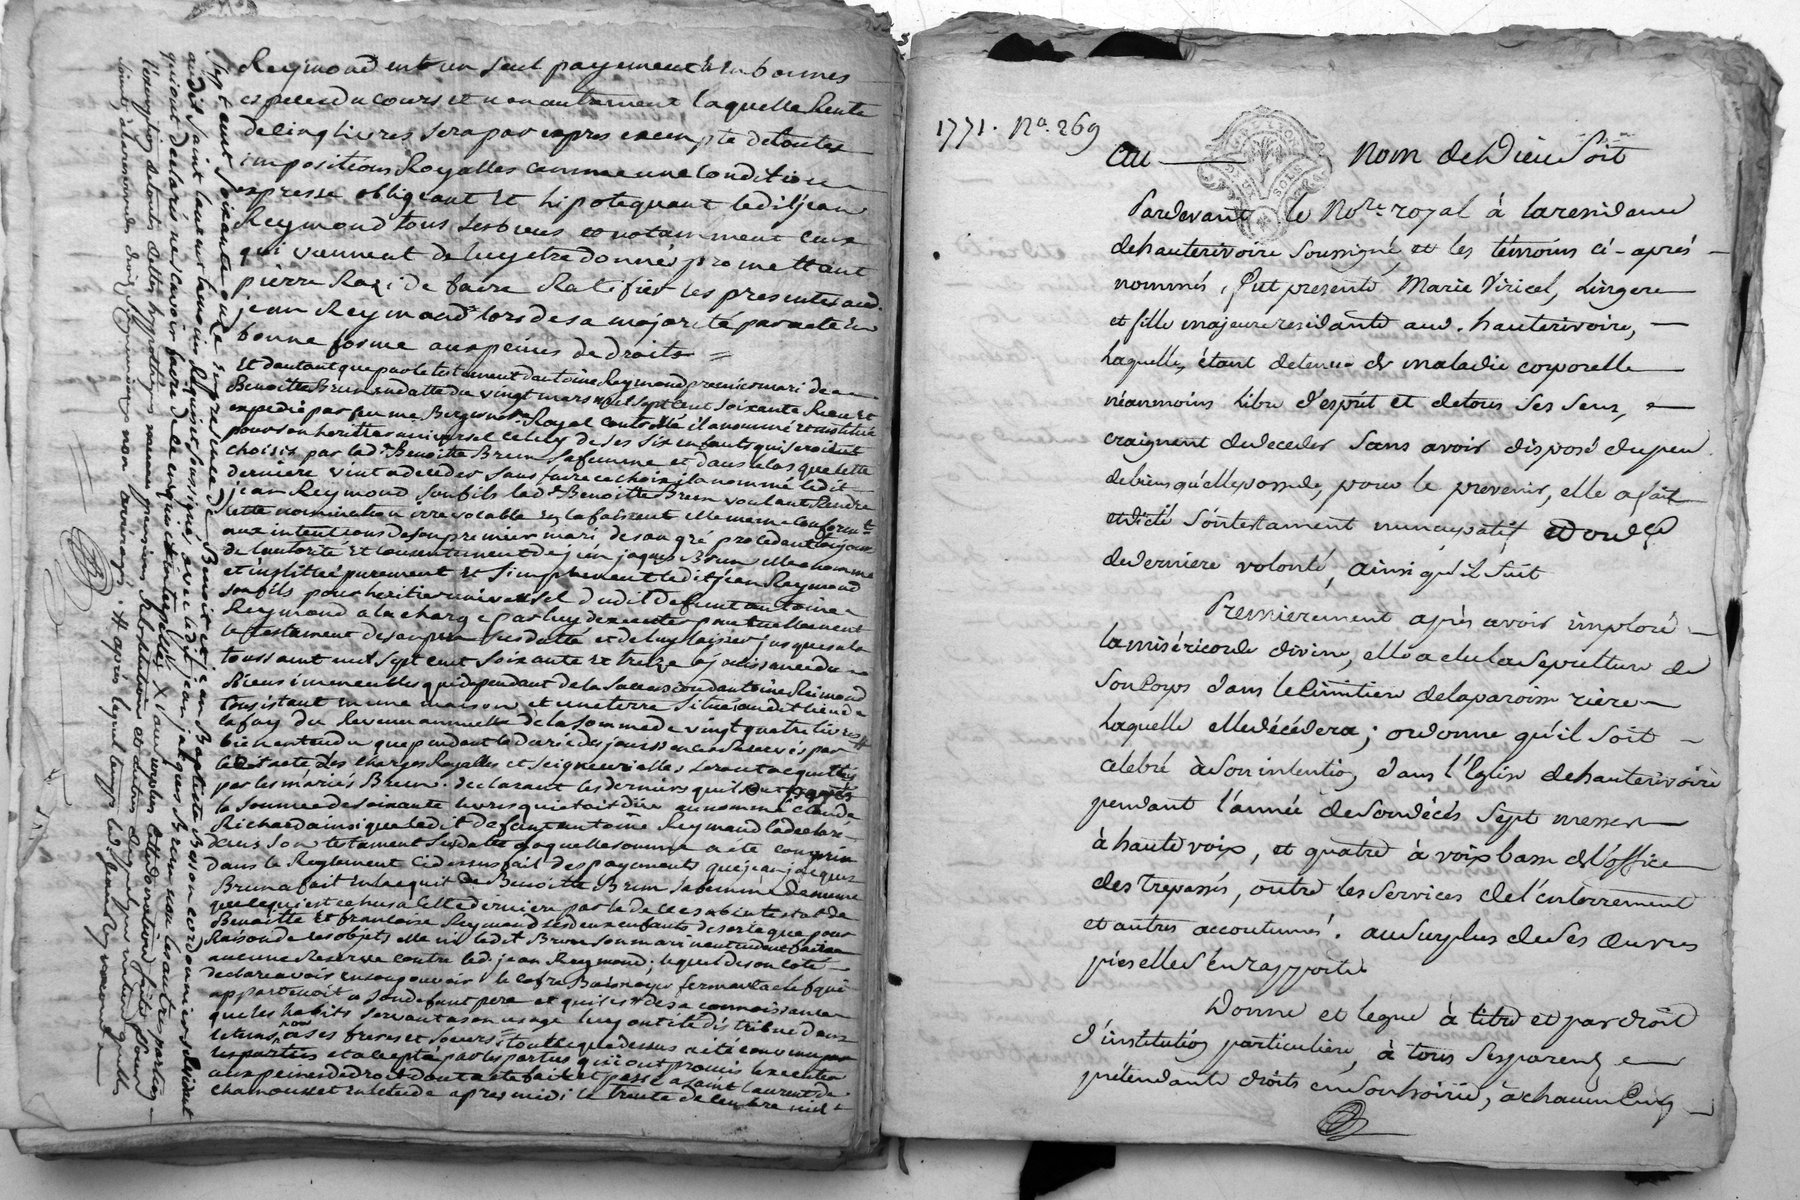 Reymond et en un seul payement et en bonnes
especes du cours et non autrement laquelle Rente
de cinq livres sera par expres exempte de toutes
impositions Royalles comme une Condition
expresse obligeant et hipotequant ledit jean
Reymond tous ses biens et notamment ceux
qui viennent de luy etre donnés promettant
pierre de faire Ratifier les presentes aud.
jean Reymond lors de sa majorité par acte en
bonne forme aux peines de droits =
Et d'autant que par le testament d'antoine Reymond premier mari de
Benoitte Brun en datte du vingt mars mil sept cent soixante Receu et
expedié par feu me Royal controllé il a nommé et institué
pour son heritier universel celuy de ses six enfants qui seroient
choisis par lad. Benoitte Brun sa femme et dans le cas que cette
derniere vint a deceder sans faire ce choix il a nommé ledit
jean Reymond son fils lad. Benoitte Brun voulant Rendre
cette nomination irrevocable en la faisant elle meme conformt.
aux intentions de son premier mari de son gré procedant toujours
de l'autorité et consentement de jean jaques Brun elle nomme
et institue purement et simplement ledit jean Reymond
son fils pour heritier universel dudit defunt antoine
Reymond a la charge par luy d'executer ponctuellement
le testament de son pere susdatté et de luy laisser jusques a la
toussaint mil sept cent soixante et treize la jouissance des
Biens immeubles qui dependent de la succession d'antoine Reimond
consistant en une maison et une terre situé audit lieu de
lafay du Revenu annuelle de la somme de vingt quatre livres #
bien entendu que pendant la durée des jouissances Reservés par
ledit acte les charges Royalles et seigneurielles seront acquittés
par les mariés Brun. declarant les derniers qu'ils ont payés
la somme de soixante livres qui etoit düe au nommé claude
Richard ainsi que ledit defunt antoine Reymond l'a declaré
dans son testament susdatté laquelle somme a eté comprise
dans le Reglement cidessus fait des payements que jean jacques
Brun a fait en l'acquit de Benoitte Brun sa femme de meme
que ce qui est echus a cette derniere par le deces abintestat de
Benoitte et francoise Reymond ses deux enfants de sorte que pour
Raison de ces objets elle ni ledit Brun son mari n'entendent faire
aucune Reserve contre led. jean Reymond; lequel de son coté
declare avoir en son pouvoir le cofre Bois noyer fermant a clef qui
appartenoit a son defunt pere et qu'il est de sa connoissance
que les habits servant a son usage luy ont eté distribué dans
le tems a nous a ses freres et soeurs = tout ce que dessus a eté convenu par
les parties et accepté par les parties qui ont promis l'execution
aux peines de droit dont acte fait et passé a saint laurent de
chamousset en letude apres midi le trente decembre mil
sept cent soixante onze en presence de Benoit et jean Baptiste Besson cordonniers Residant
audit saint laurent temoins Requis et soussignés avec ledit jean jacques Brun non les autres parties
qui ont declaré ne scavoir faire de ce enquis et interpellés X au surplus cette donation faite pour
l'exemption de toutes dettes hypoteques meme pensions substitutions et d'autres de quelque nature quelles
soient a la reserve des droits seigneuriaux non arreragés. # apres lequel temps led. jean Reymond
1771. No. 269
Au — Nom de Dieu Soit
Pardevant le Nore. royal à la residance
de hauterivoire soussigné et les témoins ci-aprés
nommés, fut presente Marie Viricel, Lingere
et fille majeure residante aud. hauterivoire,
Laquelle, étant detenue de maladie corporelle
néanmoins libre d'esprit et de tous ses sens,
craignent de deceder sans avoir disposé du peu
de biens qu'elle possede, pour le prevenir, elle a fait
et dicté son testament nuncupatif et ord.re
de derniere volonté, ainsi qu'il suit
Premierement après avoir imploré
la miséricorde divine, elle a elu la sepulture de
son corps dans le cimitiere de la paroisse rière
Laquelle elle décédera; ordonne qu'il soit
celebré à son intention, dans l'Eglise de hauterivoire
pendant l'année de son décés sept messes
à haute voix, et quatre à voix basse de l'office
des trepassés, outre les services de l'enterrement
et autres accoutumés. au surplus de ses œuvres
pies elle s'en rapporte.
Donne et legue à titre et par droit
d'institution particuliere, à tous ses parents
prétendants droits en son hoirie, à chacun Cinq